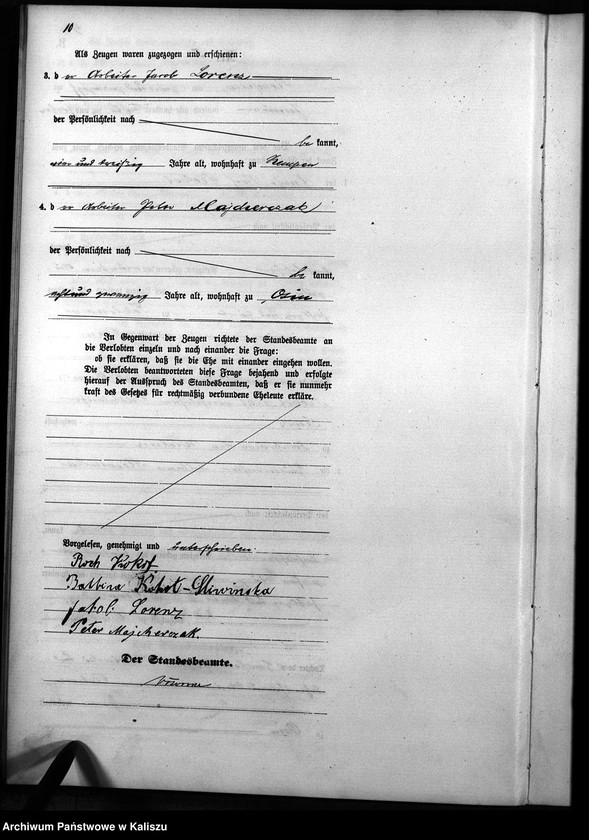 10
Als Zeugen waren zugezogen und erschienen:
3. der Arbeiter Jacob Lorenz
der Persönlichkeit nach
be kannt,
und dreißig Jahre alt, wohnhaft zu Kempen
4. der Arbeiter Peter Majcherczak
der Persönlichkeit nach
be kannt,
acht und zwanzig Jahre alt, wohnhaft zu Osin
In Gegenwart der Zeugen richtete der Standesbeamte an
die Verlobten einzeln und nach einander die Frage:
ob sie erklären, daß sie die Ehe mit einander eingehen wollen.
Die Verlobten beantworteten diese Frage bejahend und erfolgte
hierauf der Ausspruch des Standesbeamten, daß er sie nunmehr
kraft des Gesetzes für rechtmäßig verbundene Eheleute erkläre.
Vorgelesen, genehmigt und unterschrieben.
Roch Kokot
Balbina Kokot-Sliwinska
Jakob Lorenz
Peter Majcherczak.
Der Standesbeamte.
Archiwum Państwowe w Kaliszu